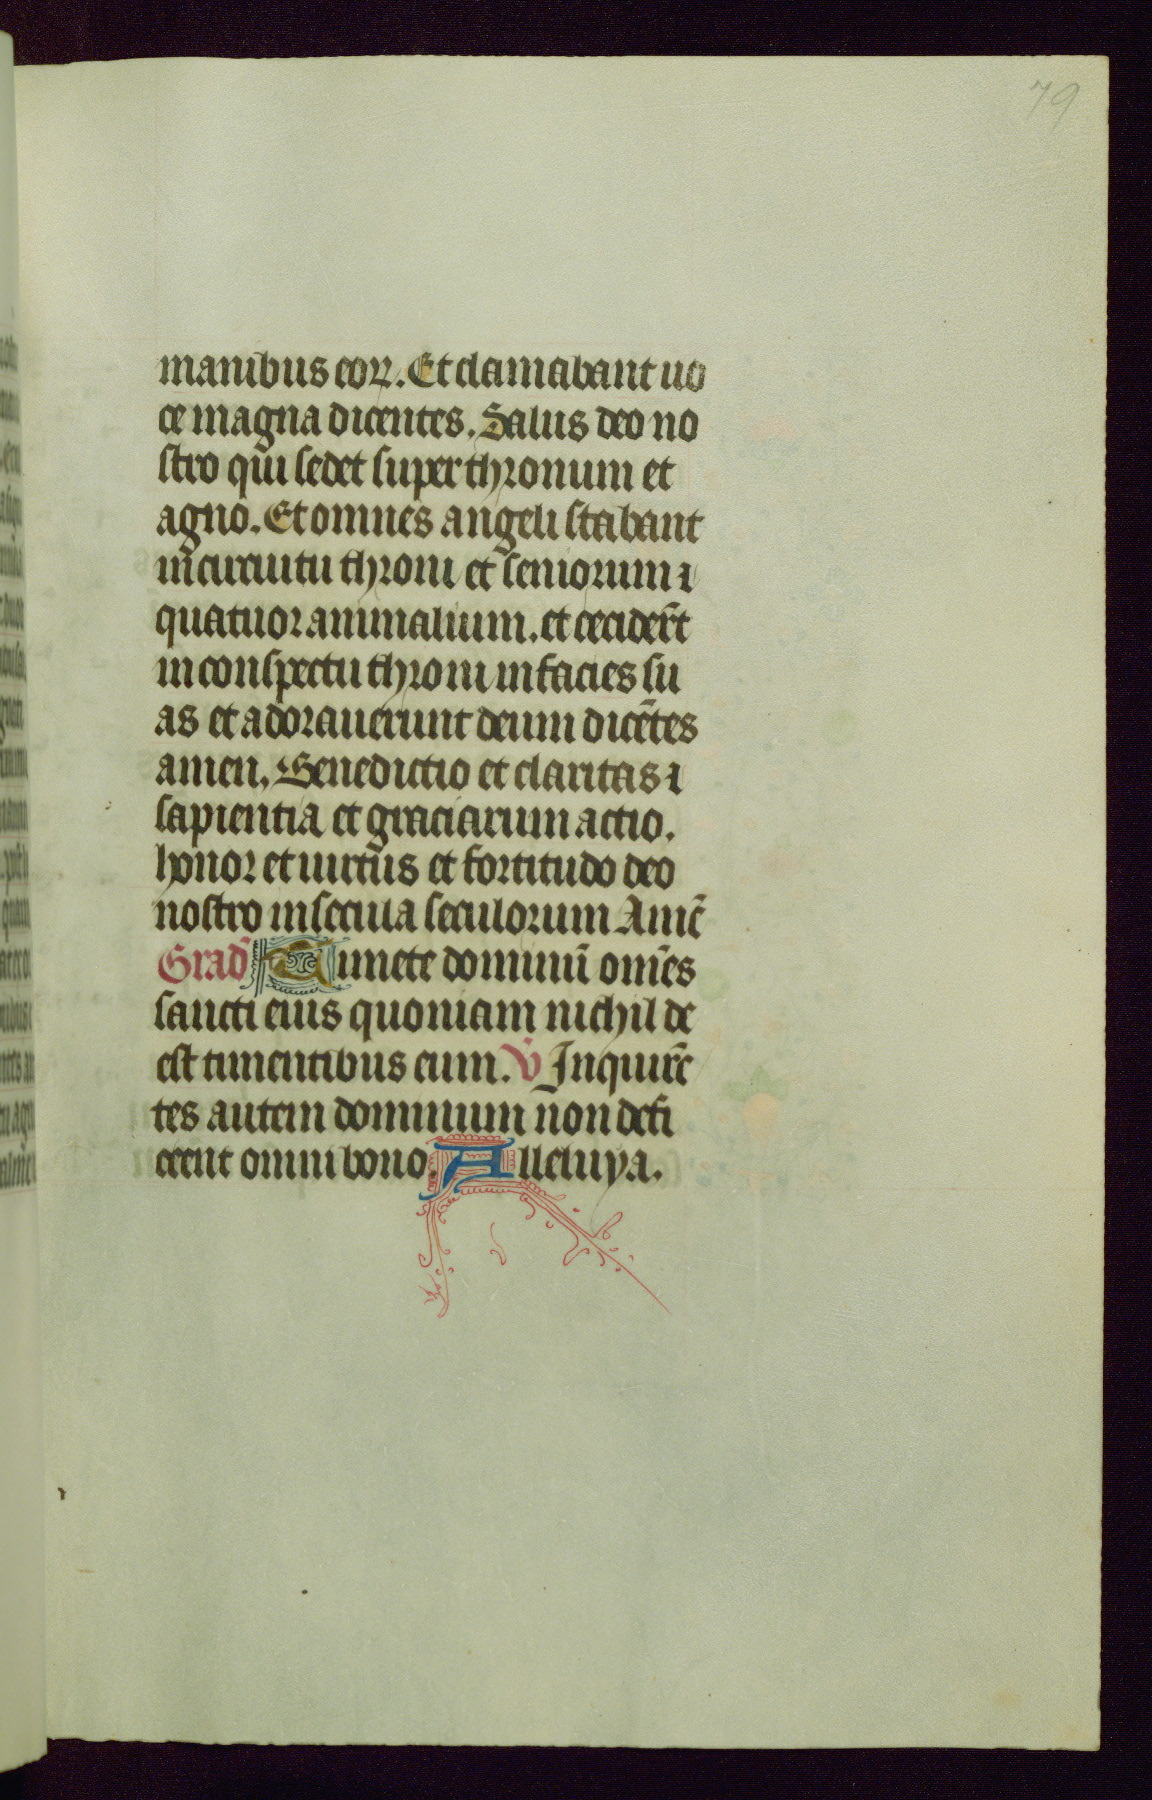 79
manibus eoꝝ. Et clamabant uo
ce magna dicentes. Salus deo no
stro qui sedet super thronum et
agno. Et omnes angeli stabant
in circuitu throni et seniorum ⁊
quatuor animalium. et cecider̄t
in conspectu throni in facies su
as et adorauerunt deum dicētes
amen. Benedictio et claritas ⁊
sapientia et graciarum actio.
honor et uirtus et fortitudo deo
nostro in secula seculorum Amē
Grad̄ Timete dominū om̄es
sancti eius quoniam nichil de
est timentibus eum. V̄ Inquirē
tes autem dominum non defi
cient omni bono. Alleluya.